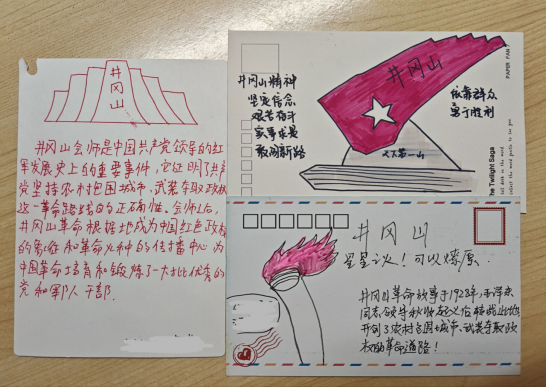 井
冈
山
井冈山会师是中国共产党领导的红
军发展史上的重要事件,它证明了共产
党坚持农村包围城市,武装夺取政权
这一革命路线的正确性。会师后,
井冈山革命根据地成为中国红色政权
的象征和革命火种的传播中心,为
中国革命培育和锻炼了一大批优秀的
党和军队干部.
井冈山精神
坚定信念
艰苦奋斗
实事求是
敢闯新路
井冈山
依靠群众
勇于胜利
天下第一山
PAPER FAN
The Twilight Saga
井冈山
星星之火!可以燎原.
井冈山革命故事于1928年,毛泽东
同志领导秋收起义后
开创了农村包围城市、武装夺取政
权的革命道路!